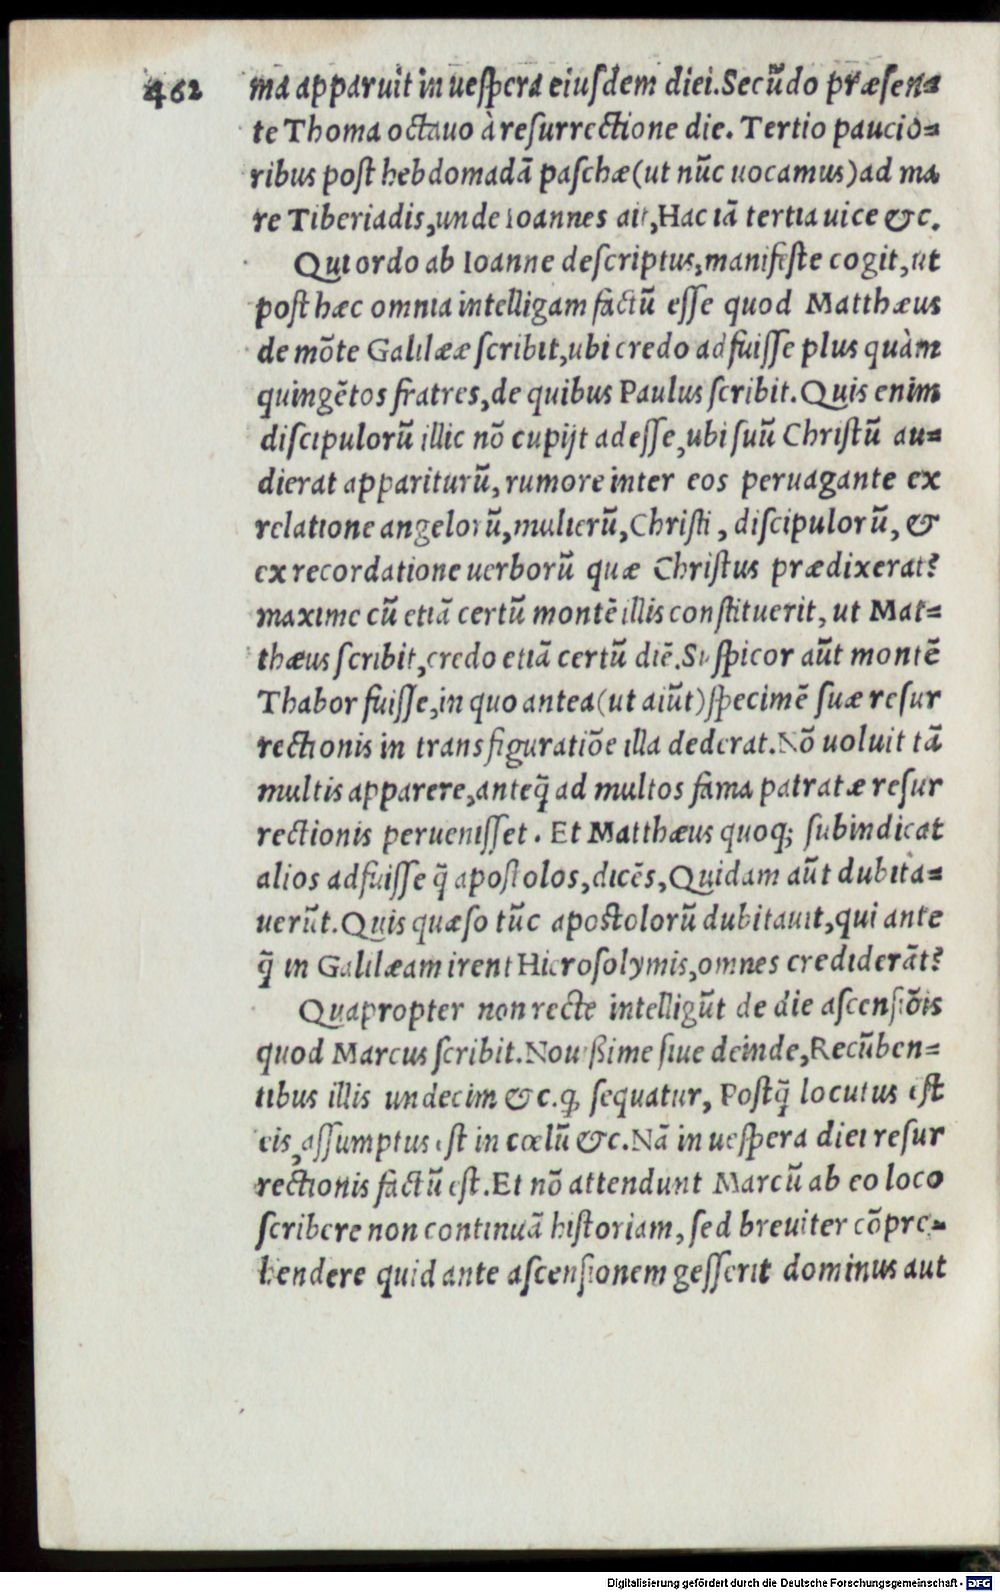 462
ma apparuit in uespera eiusdem diei. Secũdo præsen=
te Thoma octauo à resurrectione die. Tertio paucio=
ribus post hebdomadã paschæ(ut nũc uocamus)ad ma
re Tiberiadis, unde Ioannes ait, Hac iã tertia uice &c.
Qui ordo ab Ioanne descriptus, manifeste cogit, ut
post hæc omnia intelligam factũ esse quod Matthæus
de mõte Galilææ scribit, ubi credo adfuisse plus quàm
quingẽtos fratres, de quibus Paulus scribit. Quis enim
discipulorũ illic nõ cupijt adesse, ubi suũ Christũ au=
dierat appariturũ, rumore inter eos peruagante ex
relatione angelorũ, mulierũ, Christi, discipulorũ, &
ex recordatione uerborũ quæ Christus prædixerat?
maxime cũ etiã certũ montẽ illis constituerit, ut Mat=
thæus scribit, credo etiã certũ diẽ. Suspicor aũt montẽ
Thabor fuisse, in quo antea(ut aiũt)specimẽ suæ resur
rectionis in transfiguratiõe illa dederat. Nõ uoluit tã
multis apparere, anteq̃ ad multos fama patratæ resur
rectionis peruenisset. Et Matthæus quoq; subindicat
alios adfuisse q̃ apostolos, dicẽs, Quidam aũt dubita=
uerũt. Quis quæso tũc apostolorũ dubitauit, qui ante
q̃ in Galilæam irent Hierosolymis, omnes crediderãt?
Quapropter non recte intelligũt de die ascensiõis
quod Marcus scribit. Nouißime siue deinde, Recũben=
tibus illis undecim &c. ꝙ sequatur, Postq̃ locutus est
eis, assumptus est in cœlũ &c. Nã in uespera diei resur
rectionis factũ est. Et nõ attendunt Marcũ ab eo loco
scribere non continuã historiam, sed breuiter cõpre=
hendere quid ante ascensionem gesserit dominus aut
Digitalisierung gefördert durch die Deutsche Forschungsgemeinschaft - DFG